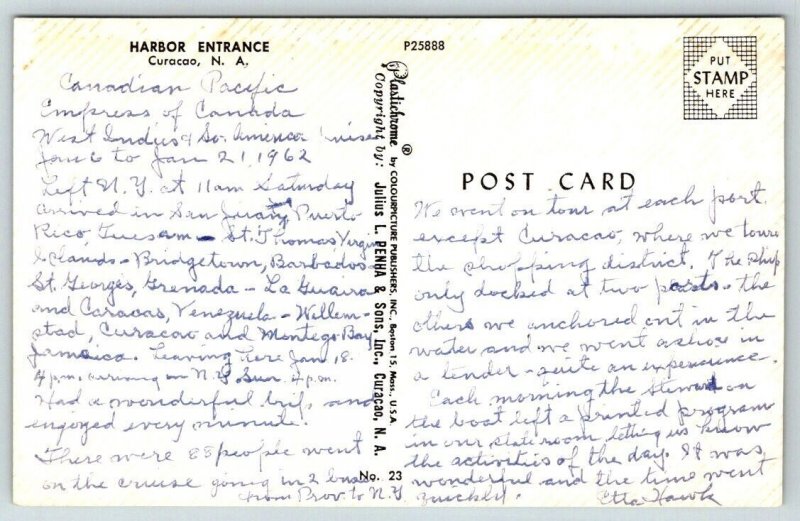 HARBOR ENTRANCE
Curacao, N. A.
P25888
PUT
STAMP
HERE
Canadian Pacific
Empress of Canada
West Indies & So. America Cruises
Jan 6 to Jan 21, 1962
Left N.Y. at 11am Saturday
arrived in San Juan, Puerto
Rico, Tuesam - St. Thomas Virgin
Islands - Bridgetown, Barbados -
St. Georges, Grenada - La Guaira
and Caracas, Venezuela - Willem-
stad, Curacao and Montego Bay
Jamaica. Leaving here Jan 18.
4 p.m. arriving in N.Y. Sun. 4 p.m.
Had a wonderful trip, and
enjoyed every minute.
There were 88 people went
on the cruise going in 2 buses
from Prov. to N.Y.
Plastichrome ® by COLOURPICTURE PUBLISHERS, INC. Boston 15, Mass., U.S.A.
Copyright by: Julius L. PENHA & Sons, Inc., Curacao, N. A.
No. 23
POST CARD
We went on tour at each port
except Curacao, where we toured
the shopping district. The ship
only docked at two ports - the
others we anchored out in the
water and we went ashore in
a tender - quite an experience.
Each morning the steward on
the boat left a printed program
in our stateroom letting us know
the activities of the day. It was
wonderful and the time went
quickly. Etta Hawk